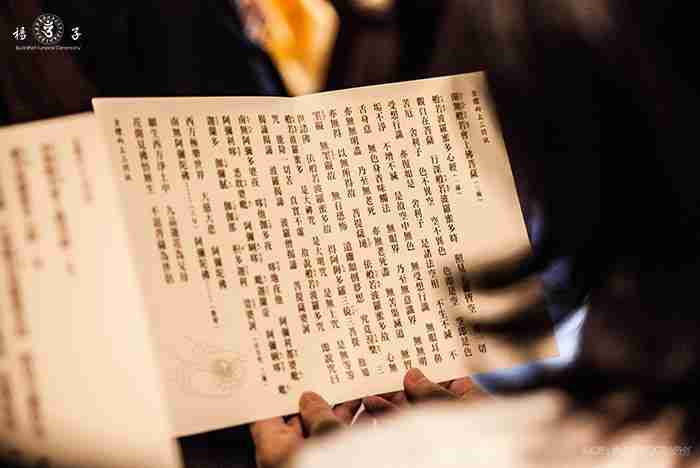 楊子
Buddhist Funeral Ceremony
全體向上三問訊
南無般若會上佛菩薩(三稱)
般若波羅蜜多心經(一遍)
觀自在菩薩 行深般若波羅蜜多時 照見五蘊皆空 一切
苦厄 舍利子 色不異空 空不異色 色即是空 空即是色
受想行識 亦復如是 舍利子 是諸法空相 不生不滅 不
垢不淨 不增不減 是故空中無色 無受想行識 無眼耳鼻
舌身意 無色聲香味觸法 無眼界 乃至無意識界 無無明
亦無無明盡 乃至無老死 亦無老死盡 無苦集滅道 無智
亦無得 以無所得故 菩提薩埵 依般若波羅蜜多故 心無
罣礙 無罣礙故 無有恐怖 遠離顛倒夢想 究竟涅槃 三
世諸佛 依般若波羅蜜多故 得阿耨多羅三藐三菩提 故知
般若波羅蜜多 是大神咒 是大明咒 是無上咒 是無等等
咒 能除一切苦 真實不虛 故說般若波羅蜜多咒 即說咒曰
揭諦揭諦 波羅揭諦 波羅僧揭諦 菩提薩婆訶
南無阿彌多婆夜 哆他伽多夜 哆地夜他 阿彌利都婆毗
阿彌利哆 悉耽婆毗 阿彌唎哆 毗迦蘭帝 阿彌唎哆 毗
迦蘭多 伽彌膩 伽伽那 枳多迦利 娑婆訶
西方極樂世界 大慈大悲 阿彌陀佛
南無阿彌陀佛 阿彌陀佛
願生西方淨土中 九品蓮花為父母
花開見佛悟無生 不退菩薩為伴侶
全體向上三問訊